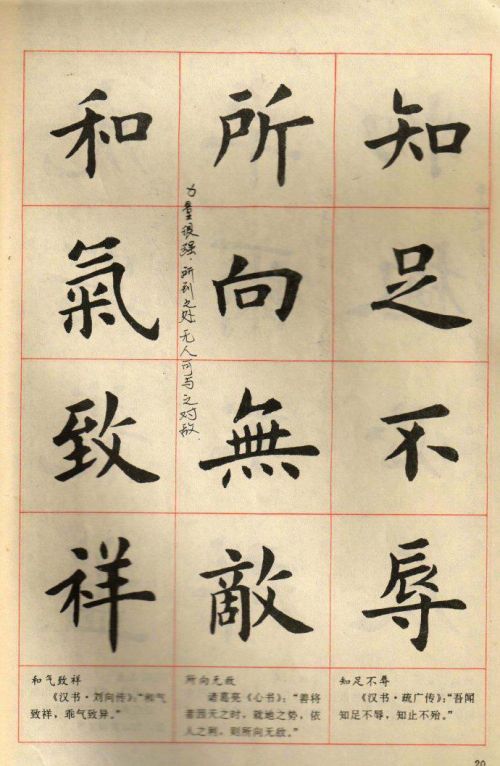 知足不辱
所向無敵
力量很强.所到之处无人可与之对敌.
和氣致祥
知足不辱
《汉书·疏广传》：“吾闻
知足不辱，知止不殆。”
所向无敌
诸葛亮《心书》：“善将
者因天之时，就地之势，依
人之利，则所向无敌。”
和气致祥
《汉书·刘向传》：“和气
致祥，乖气致异。”
20